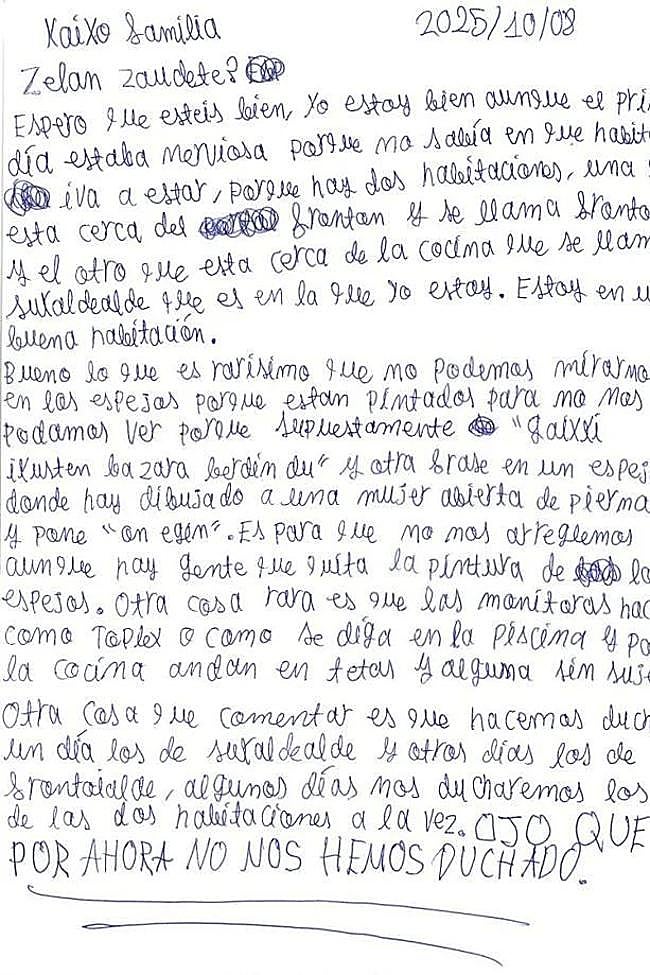 Kaixo familia 2025/10/08
Zelan zaudete?
Espero que esteis bien, yo estoy bien aunque el pri
día estaba nerviosa porque no sabía en que habit
iva a estar, porque hay dos habitaciones, una
esta cerca del fronton y se llama fronto
y el otro que esta cerca de la cocina que se llam
sukaldealde que es en la que yo estoy. Estoy en u
buena habitación.
Bueno lo que es rarisimo que no podemos mirarno
en los espejos porque estan pintados para no nos
podamos ver porque supuestamente "gaixxi
ikusten bazara berdin du" y otra frase en un espej
donde hay dibujado a una mujer abierta de pierna
y pone "on egin". Es para que no nos arreglemos
aunque hay gente que quita la pintura de lo
espejos. Otra cosa rara es que las monitoras hac
como Toplex o como se diga en la piscina y po
la cocina andan en tetas y alguna sin suje
Otra cosa que comentar es que hacemos duch
un día los de sukaldealde y otros días los de
frontoialde, algunos días nos ducharemos los
de las dos habitaciones a la vez. OJO QUE
POR AHORA NO NOS HEMOS DUCHADO.